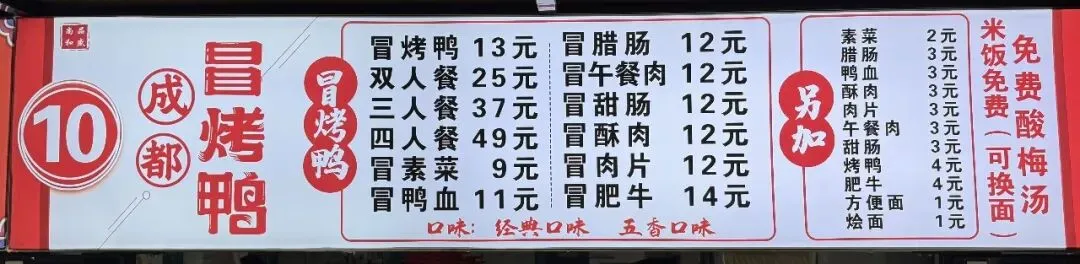 尚品
和成
10
成都
冒烤鸭
冒烤鸭
冒烤鸭 13元
双人餐 25元
三人餐 37元
四人餐 49元
冒素菜 9元
冒鸭血 11元
冒腊肠 12元
冒午餐肉 12元
冒甜肠 12元
冒酥肉 12元
冒肉片 12元
冒肥牛 14元
口味：经典口味 五香口味
另加
素菜 2元
腊肠 3元
鸭血 3元
酥肉 3元
肉片 3元
午餐肉 3元
甜肠 3元
烤鸭 4元
肥牛 4元
方便面 1元
烩面 1元
免费酸梅汤
米饭免费（可换面）